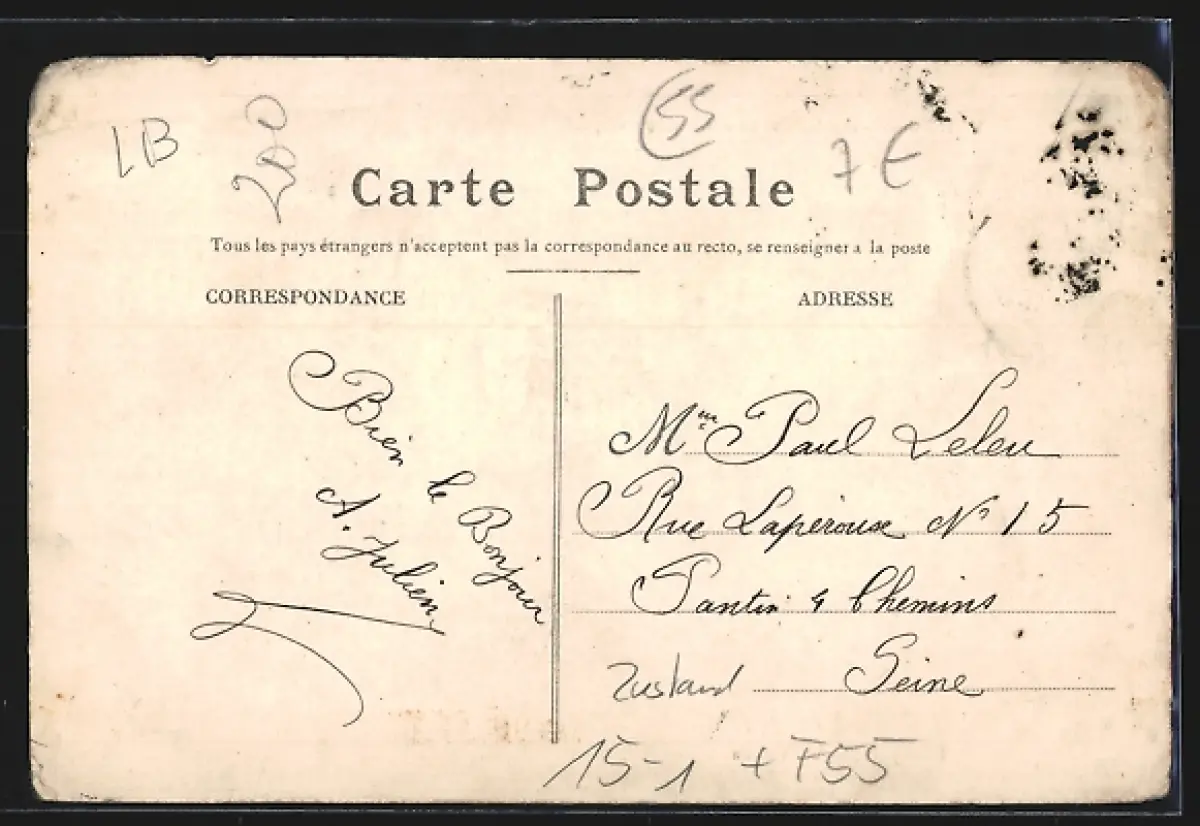 LB
200
55
7 €
Carte Postale
Tous les pays étrangers n'acceptent pas la correspondance au recto, se renseigner a la poste
CORRESPONDANCE
ADRESSE
Bien le Bonjour
A. Julien
Mme Paul Leleu
Rue Laperouse No 15
Pantin 4 Chemins
Seine
Zustand
15-1 + F55